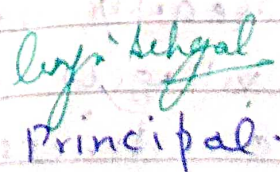 Sehgal
Principal.